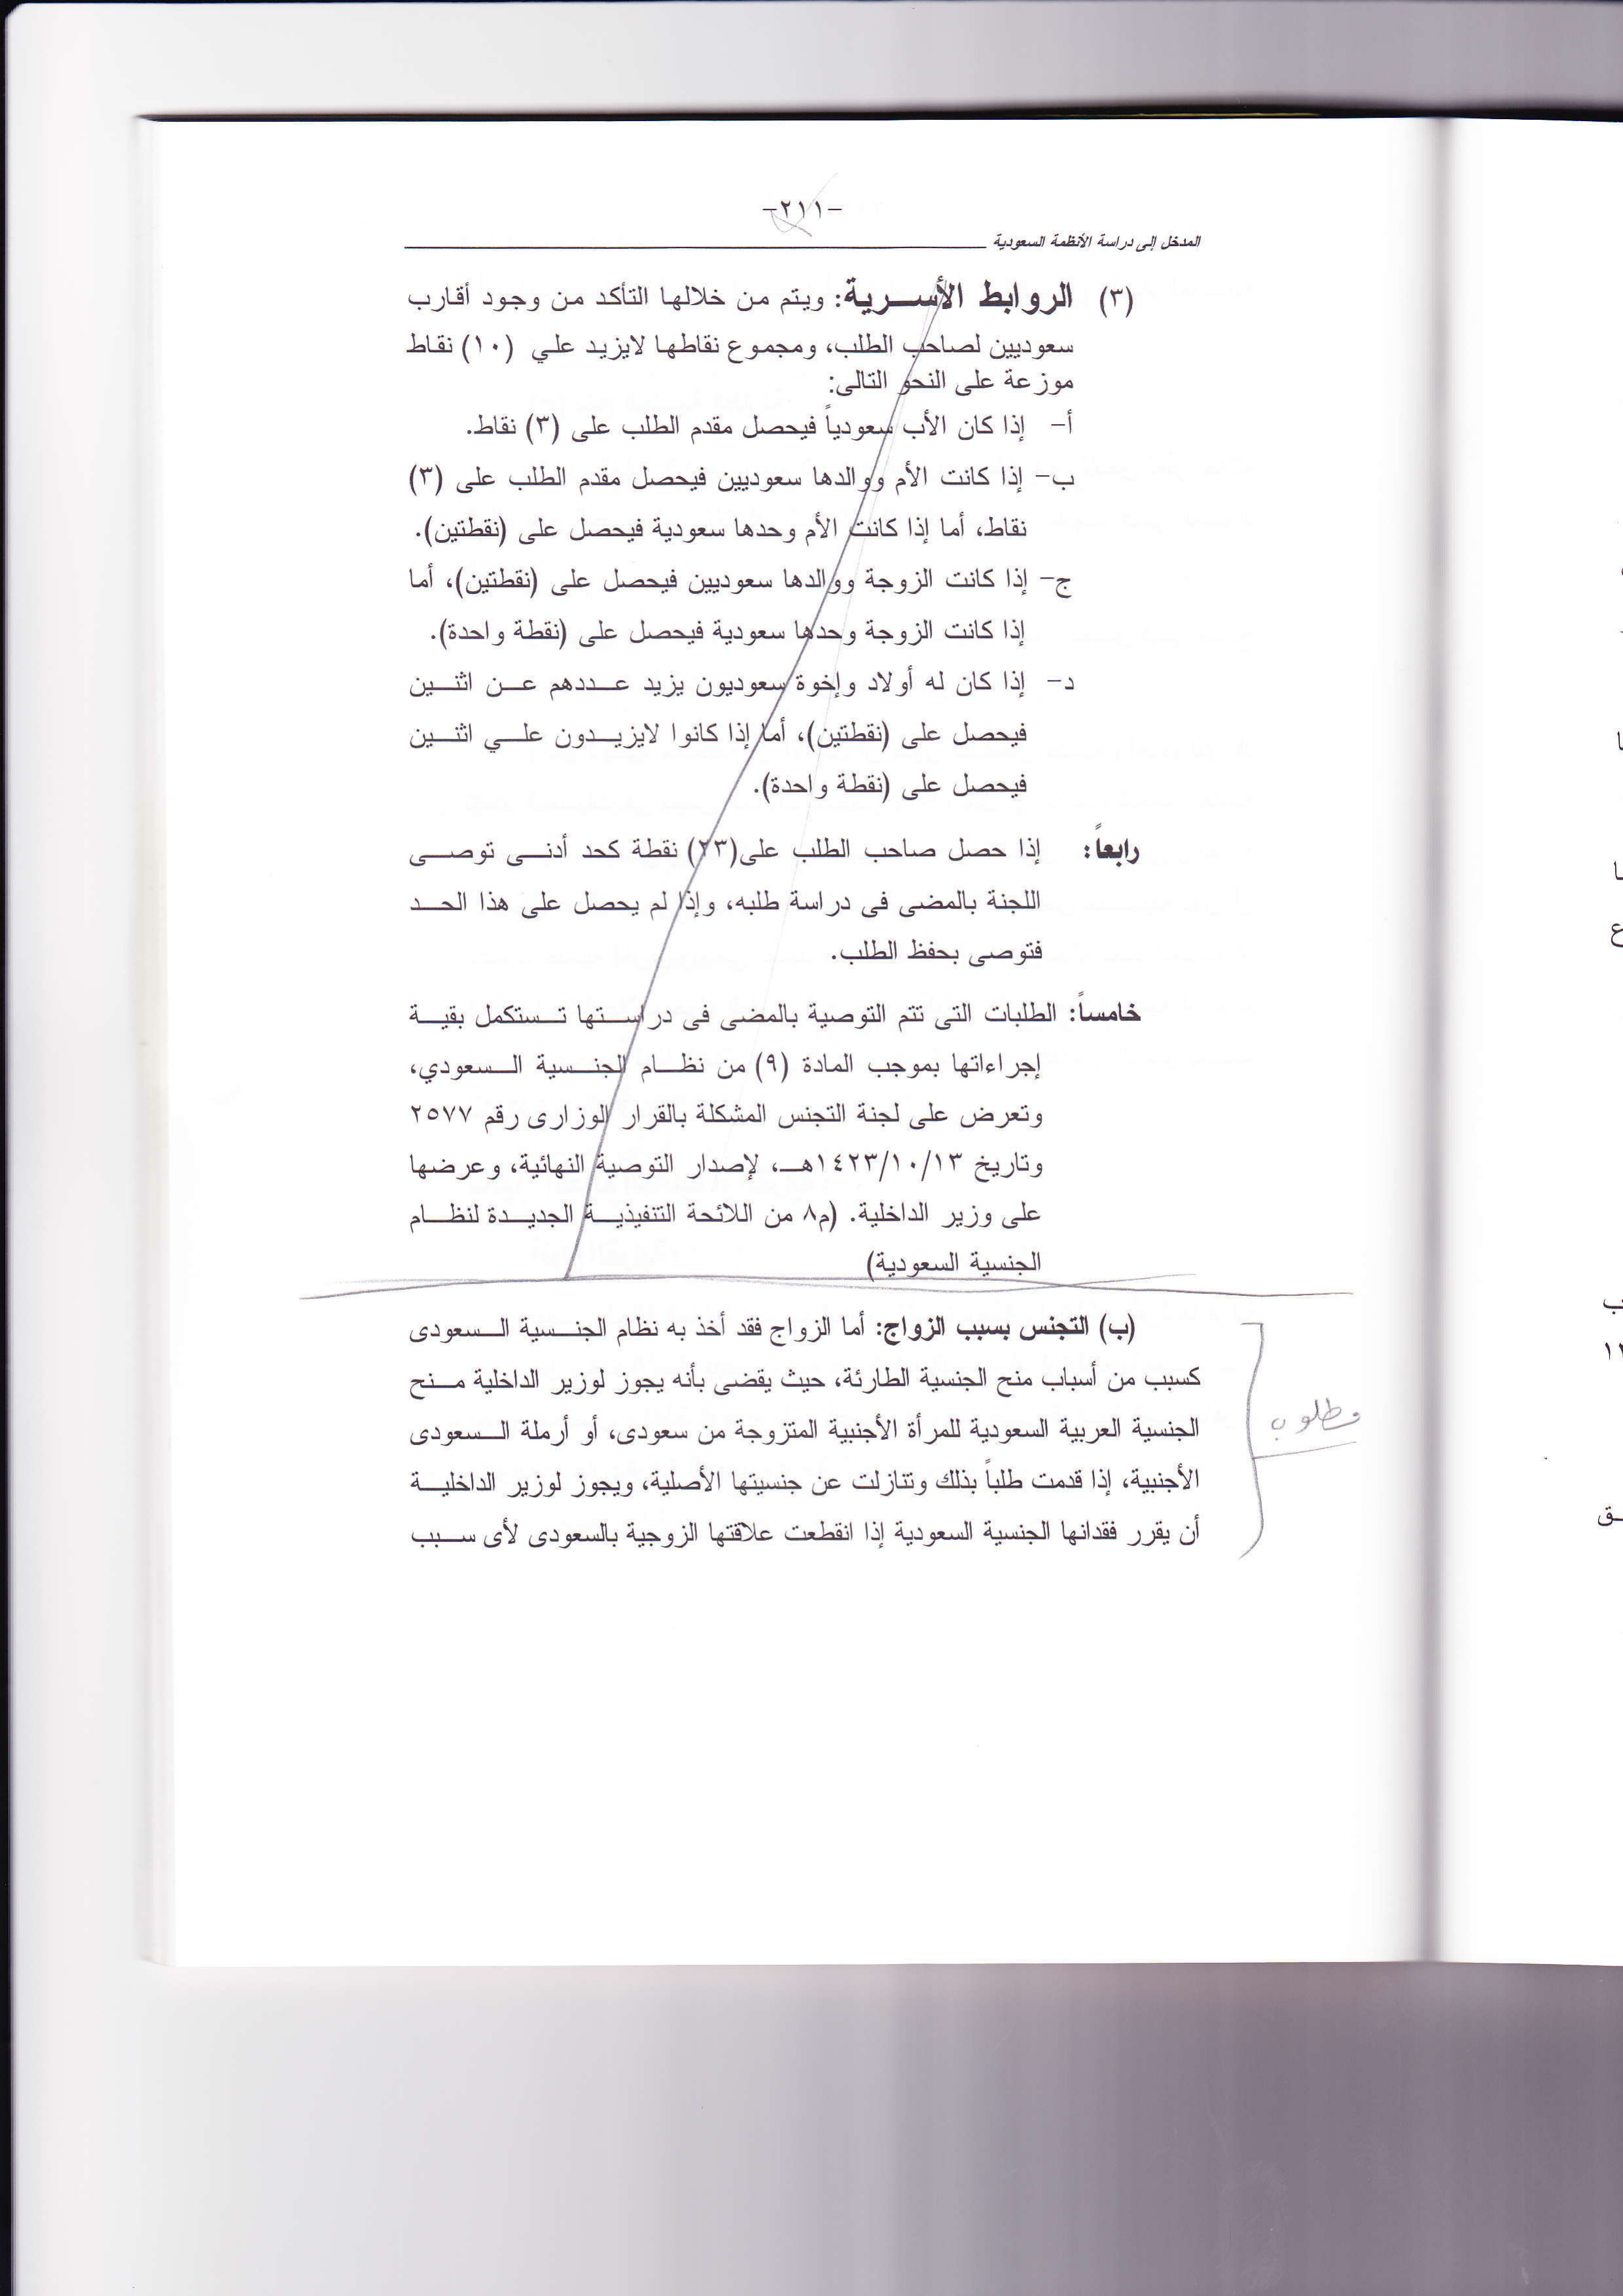 -٢١١-
المدخل إلى دراسة الأنظمة السعودية
(٣) الروابط الأسرية: ويتم من خلالها التأكد من وجود أقارب
سعوديين لصاحب الطلب، ومجموع نقاطها لايزيد علي (١٠) نقاط
موزعة على النحو التالى:
أ- إذا كان الأب سعودياً فيحصل مقدم الطلب على (٣) نقاط.
ب- إذا كانت الأم ووالدها سعوديين فيحصل مقدم الطلب على (٣)
نقاط، أما إذا كانت الأم وحدها سعودية فيحصل على (نقطتين).
ج- إذا كانت الزوجة ووالدها سعوديين فيحصل على (نقطتين)، أما
إذا كانت الزوجة وحدها سعودية فيحصل على (نقطة واحدة).
د- إذا كان له أولاد وإخوة سعوديون يزيد عددهم عن اثنين
فيحصل على (نقطتين)، أما إذا كانوا لايزيدون علي اثنين
فيحصل على (نقطة واحدة).
رابعاً: إذا حصل صاحب الطلب على(٢٣) نقطة كحد أدنى توصى
اللجنة بالمضى فى دراسة طلبه، وإذا لم يحصل على هذا الحد
فتوصى بحفظ الطلب.
خامساً: الطلبات التى تتم التوصية بالمضى فى دراستها تستكمل بقية
إجراءاتها بموجب المادة (٩) من نظام الجنسية السعودي،
وتعرض على لجنة التجنس المشكلة بالقرار الوزارى رقم ٢٥٧٧
وتاريخ ١٤٢٣/١٠/١٣هـ، لإصدار التوصية النهائية، وعرضها
على وزير الداخلية. (م٨ من اللائحة التنفيذية الجديدة لنظام
الجنسية السعودية)
(ب) التجنس بسبب الزواج: أما الزواج فقد أخذ به نظام الجنسية السعودى
كسبب من أسباب منح الجنسية الطارئة، حيث يقضى بأنه يجوز لوزير الداخلية منح
الجنسية العربية السعودية للمرأة الأجنبية المتزوجة من سعودى، أو أرملة السعودى
الأجنبية، إذا قدمت طلباً بذلك وتنازلت عن جنسيتها الأصلية، ويجوز لوزير الداخلية
أن يقرر فقدانها الجنسية السعودية إذا انقطعت علاقتها الزوجية بالسعودى لأى سبب
مطلوب